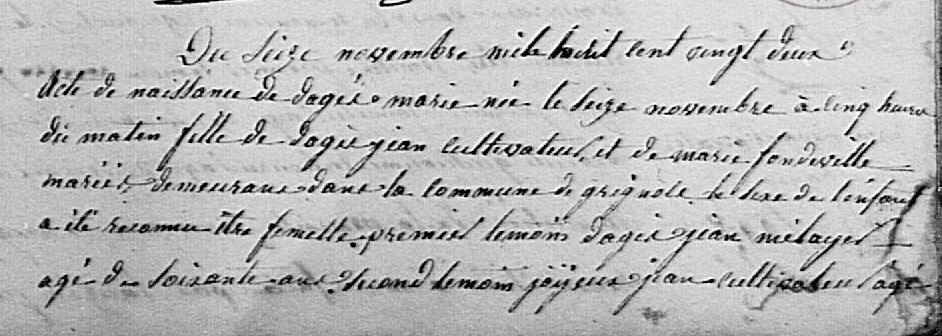 Du Seize novembre mile huit cent vingt deux
Acte de naissance de dagès marie née le seize novembre à cinq heures
du matin fille de dagès jean cultivateur, et de marie fondeville
mariés, demeurans dans la commune de grignols le sexe de l'enfant
a été reconnu être femelle. premier temoin dagès jean métayer
agé de soixante ans. second temoin joyeux jean cultivateur agé